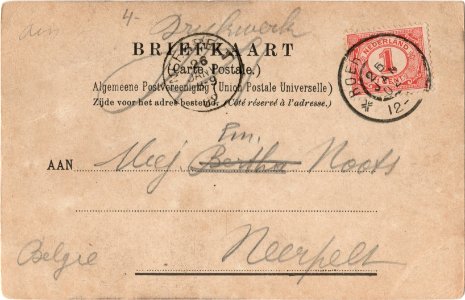 4-
Drukwerk
BRIEFKAART
(Carte Postale.)
Algemeene Postvereeniging (Union Postale Universelle)
Zijde voor het adres bestemd. (Côté réservé à l'adresse.)
NEDERLAND
1
12-
26
Em.
AAN Mej. Bertha Noots
België
Neerpelt